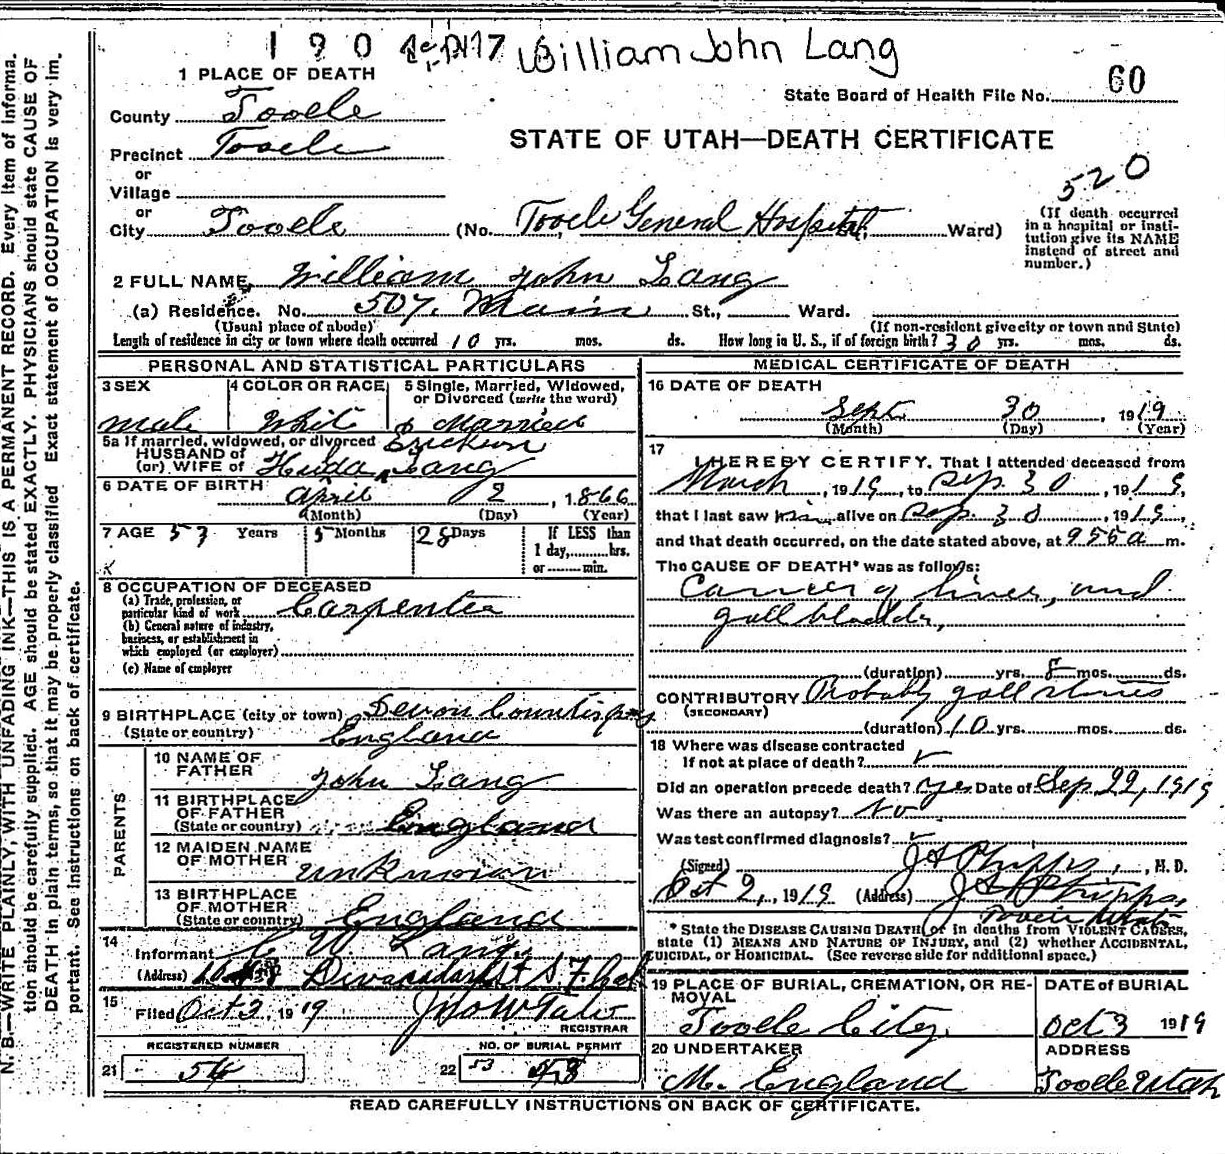 1 9 0 William John Lang
1 PLACE OF DEATH
State Board of Health File No. 60
County Tooele
STATE OF UTAH—DEATH CERTIFICATE
Precinct Tooele
or
Village
520
or
City Tooele (No. Tooele General Hospital, Ward)
(If death occurred in a hospital or institution give its NAME instead of street and number.)
2 FULL NAME William John Lang
(a) Residence. No. 507. Main St., Ward.
(Usual place of abode) (If non-resident give city or town and State)
Length of residence in city or town where death occurred 10 yrs. mos. ds. How long in U. S., if of foreign birth? 30 yrs. mos. ds.
PERSONAL AND STATISTICAL PARTICULARS
3 SEX 4 COLOR OR RACE 5 Single, Married, Widowed, or Divorced (write the word)
Male White Married
5a If married, widowed, or divorced Erickson
HUSBAND of
(or) WIFE of Lang
6 DATE OF BIRTH April 2, 1866
(Month) (Day) (Year)
7 AGE 53 Years 5 Months 28 Days If LESS than
1 day, hrs.
or min.
8 OCCUPATION OF DECEASED
(a) Trade, profession, or
particular kind of work Carpenter
(b) General nature of industry,
business, or establishment in
which employed (or employer)
(c) Name of employer
9 BIRTHPLACE (city or town) Devon
(State or country) England
PARENTS
10 NAME OF FATHER John Lang
11 BIRTHPLACE OF FATHER
(State or country) England
12 MAIDEN NAME OF MOTHER Unknown
13 BIRTHPLACE OF MOTHER
(State or country) England
14
Informant C W Lang
(Address) S. F. Cal
15
Filed Oct 2, 1919 Jno W Tate
REGISTRAR
REGISTERED NUMBER NO. OF BURIAL PERMIT
21 54 22 53
MEDICAL CERTIFICATE OF DEATH
16 DATE OF DEATH
Sept 30, 1919
(Month) (Day) (Year)
17
I HEREBY CERTIFY. That I attended deceased from
March, 1919, to Sep. 30, 1919,
that I last saw him alive on Sep. 30, 1919,
and that death occurred, on the date stated above, at 955 a m.
The CAUSE OF DEATH* was as follows:
Cancer of liver, and
gall bladder,
(duration) yrs. 8 mos. ds.
CONTRIBUTORY Probably gall stones
(SECONDARY)
(duration) 10 yrs. mos. ds.
18 Where was disease contracted
If not at place of death?
Did an operation precede death? yes Date of Sep. 22, 1919
Was there an autopsy? No
Was test confirmed diagnosis?
(Signed) J A Phipps, M. D.
Oct 2, 1919 (Address) J A Phipps,
Tooele Utah
* State the DISEASE CAUSING DEATH, or in deaths from VIOLENT CAUSES,
state (1) MEANS AND NATURE OF INJURY, and (2) whether ACCIDENTAL,
SUICIDAL, or HOMICIDAL. (See reverse side for additional space.)
19 PLACE OF BURIAL, CREMATION, OR REMOVAL DATE of BURIAL
Tooele City Oct 3 1919
20 UNDERTAKER ADDRESS
M. England Tooele Utah
READ CAREFULLY INSTRUCTIONS ON BACK OF CERTIFICATE.
N. B.—WRITE PLAINLY, WITH UNFADING INK—THIS IS A PERMANENT RECORD. Every item of informa-
tion should be carefully supplied. AGE should be stated EXACTLY. PHYSICIANS should state CAUSE OF
DEATH in plain terms, so that it may be properly classified Exact statement of OCCUPATION is very im-
portant. See instructions on back of certificate.